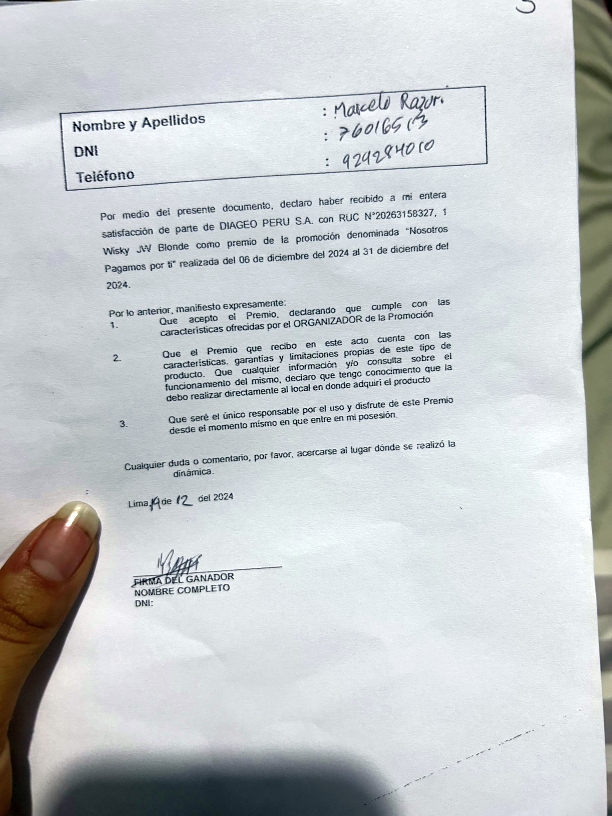 Nombre y Apellidos : Marcelo Razuri.
DNI : 76016513
Teléfono : 929284010
Por medio del presente documento, declaro haber recibido a mi entera
satisfacción de parte de DIAGEO PERU S.A. con RUC N°20263158327, 1
Wisky JW Blonde como premio de la promoción denominada "Nosotros
Pagamos por ti" realizada del 06 de diciembre del 2024 al 31 de diciembre del
2024.
Por lo anterior, manifiesto expresamente:
1. Que acepto el Premio, declarando que cumple con las
características ofrecidas por el ORGANIZADOR de la Promoción
2. Que el Premio que recibo en este acto cuenta con las
características, garantías y limitaciones propias de este tipo de
producto. Que cualquier información y/o consulta sobre el
funcionamiento del mismo, declaro que tengo conocimiento que la
debo realizar directamente al local en donde adquirí el producto
3. Que seré el único responsable por el uso y disfrute de este Premio
desde el momento mismo en que entre en mi posesión.
Cualquier duda o comentario, por favor, acercarse al lugar donde se realizó la
dinámica.
Lima, 19 de 12 del 2024
FIRMA DEL GANADOR
NOMBRE COMPLETO
DNI: